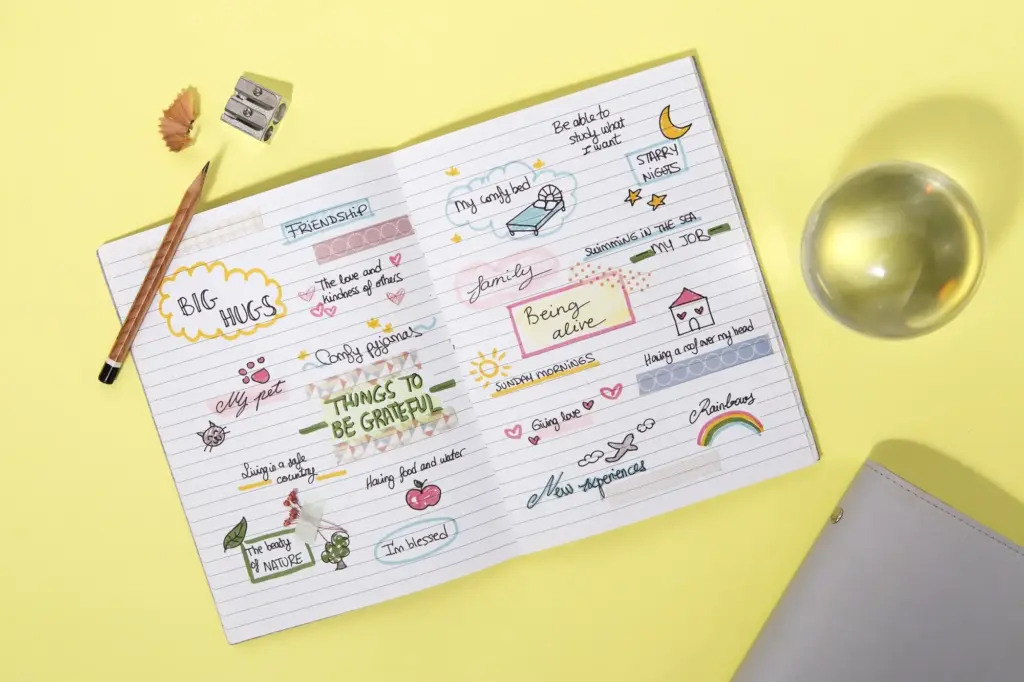 FRIENDSHIP
BIG
HUGS
The love and
kindness of others
Comfy pyjamas
My pet
THINGS TO
BE GRATEFUL
Living is a safe
country
Having food and water
The beauty
of NATURE
I'm blessed
Be able to
study what
I want
My comfy bed
STARRY
NIGHTS
SWIMMING IN THE SEA
MY JOB
family
Being
alive
SUNDAY MORNINGS
Having a roof over my head
Giving love
Rainbows
New experiences